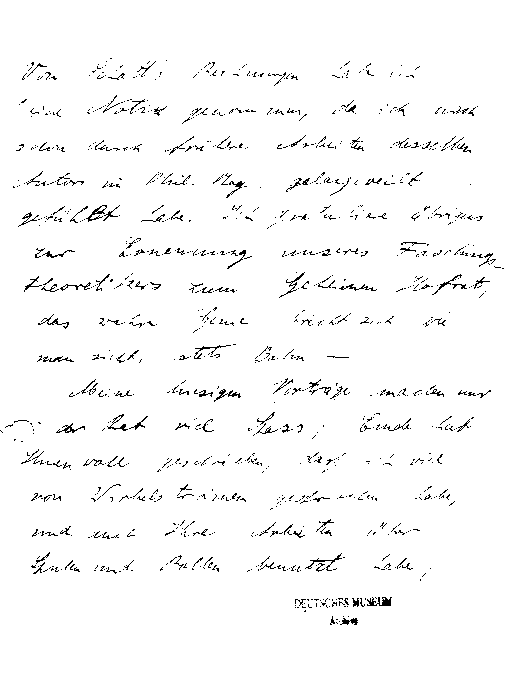 Von Rechnungen habe ich
eine Notiz genommen, da ich mich
schon durch frühere Arbeiten desselben
Autors in Phil. Mag. gelangweilt
gefühlt habe. Ich gratuliere übrigens
zur Ernennung unseres Faschings
theoretikers zum Geheimen Hofrat,
das wahre Genie bricht sich wie
man sieht, stets Bahn —
Meine hiesigen Vorträge machen mir
in der Tat viel Spass; Emde hat
Ihnen wohl geschrieben, dass ich viel
von Wirbelströmen gesprochen habe,
und auch Ihre Arbeiten über
Spulen und benutzt habe,
DEUTSCHES MUSEUM
Archiv